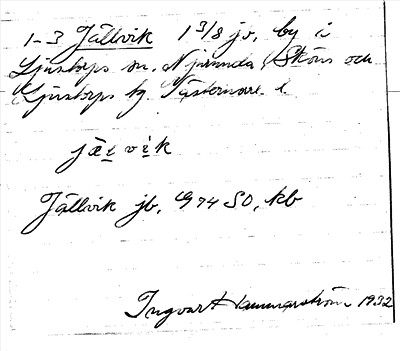 1-3 Jällvik 1 3/8 jv, by i
Ljustorps sn. Njurunda, Sköns och
Ljustorps tg. Västernorr. l.
jætvik
Jällvik jb, G 74 SO, kb
Ingvar Hammarström 1932